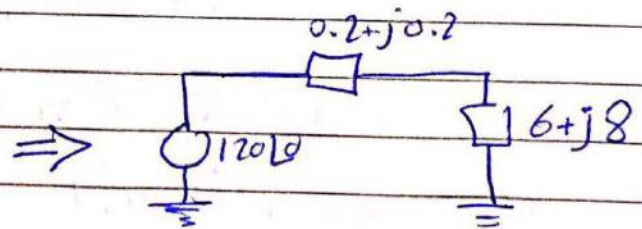 0.2+j0.2
⇒ 120∠0 6+j8